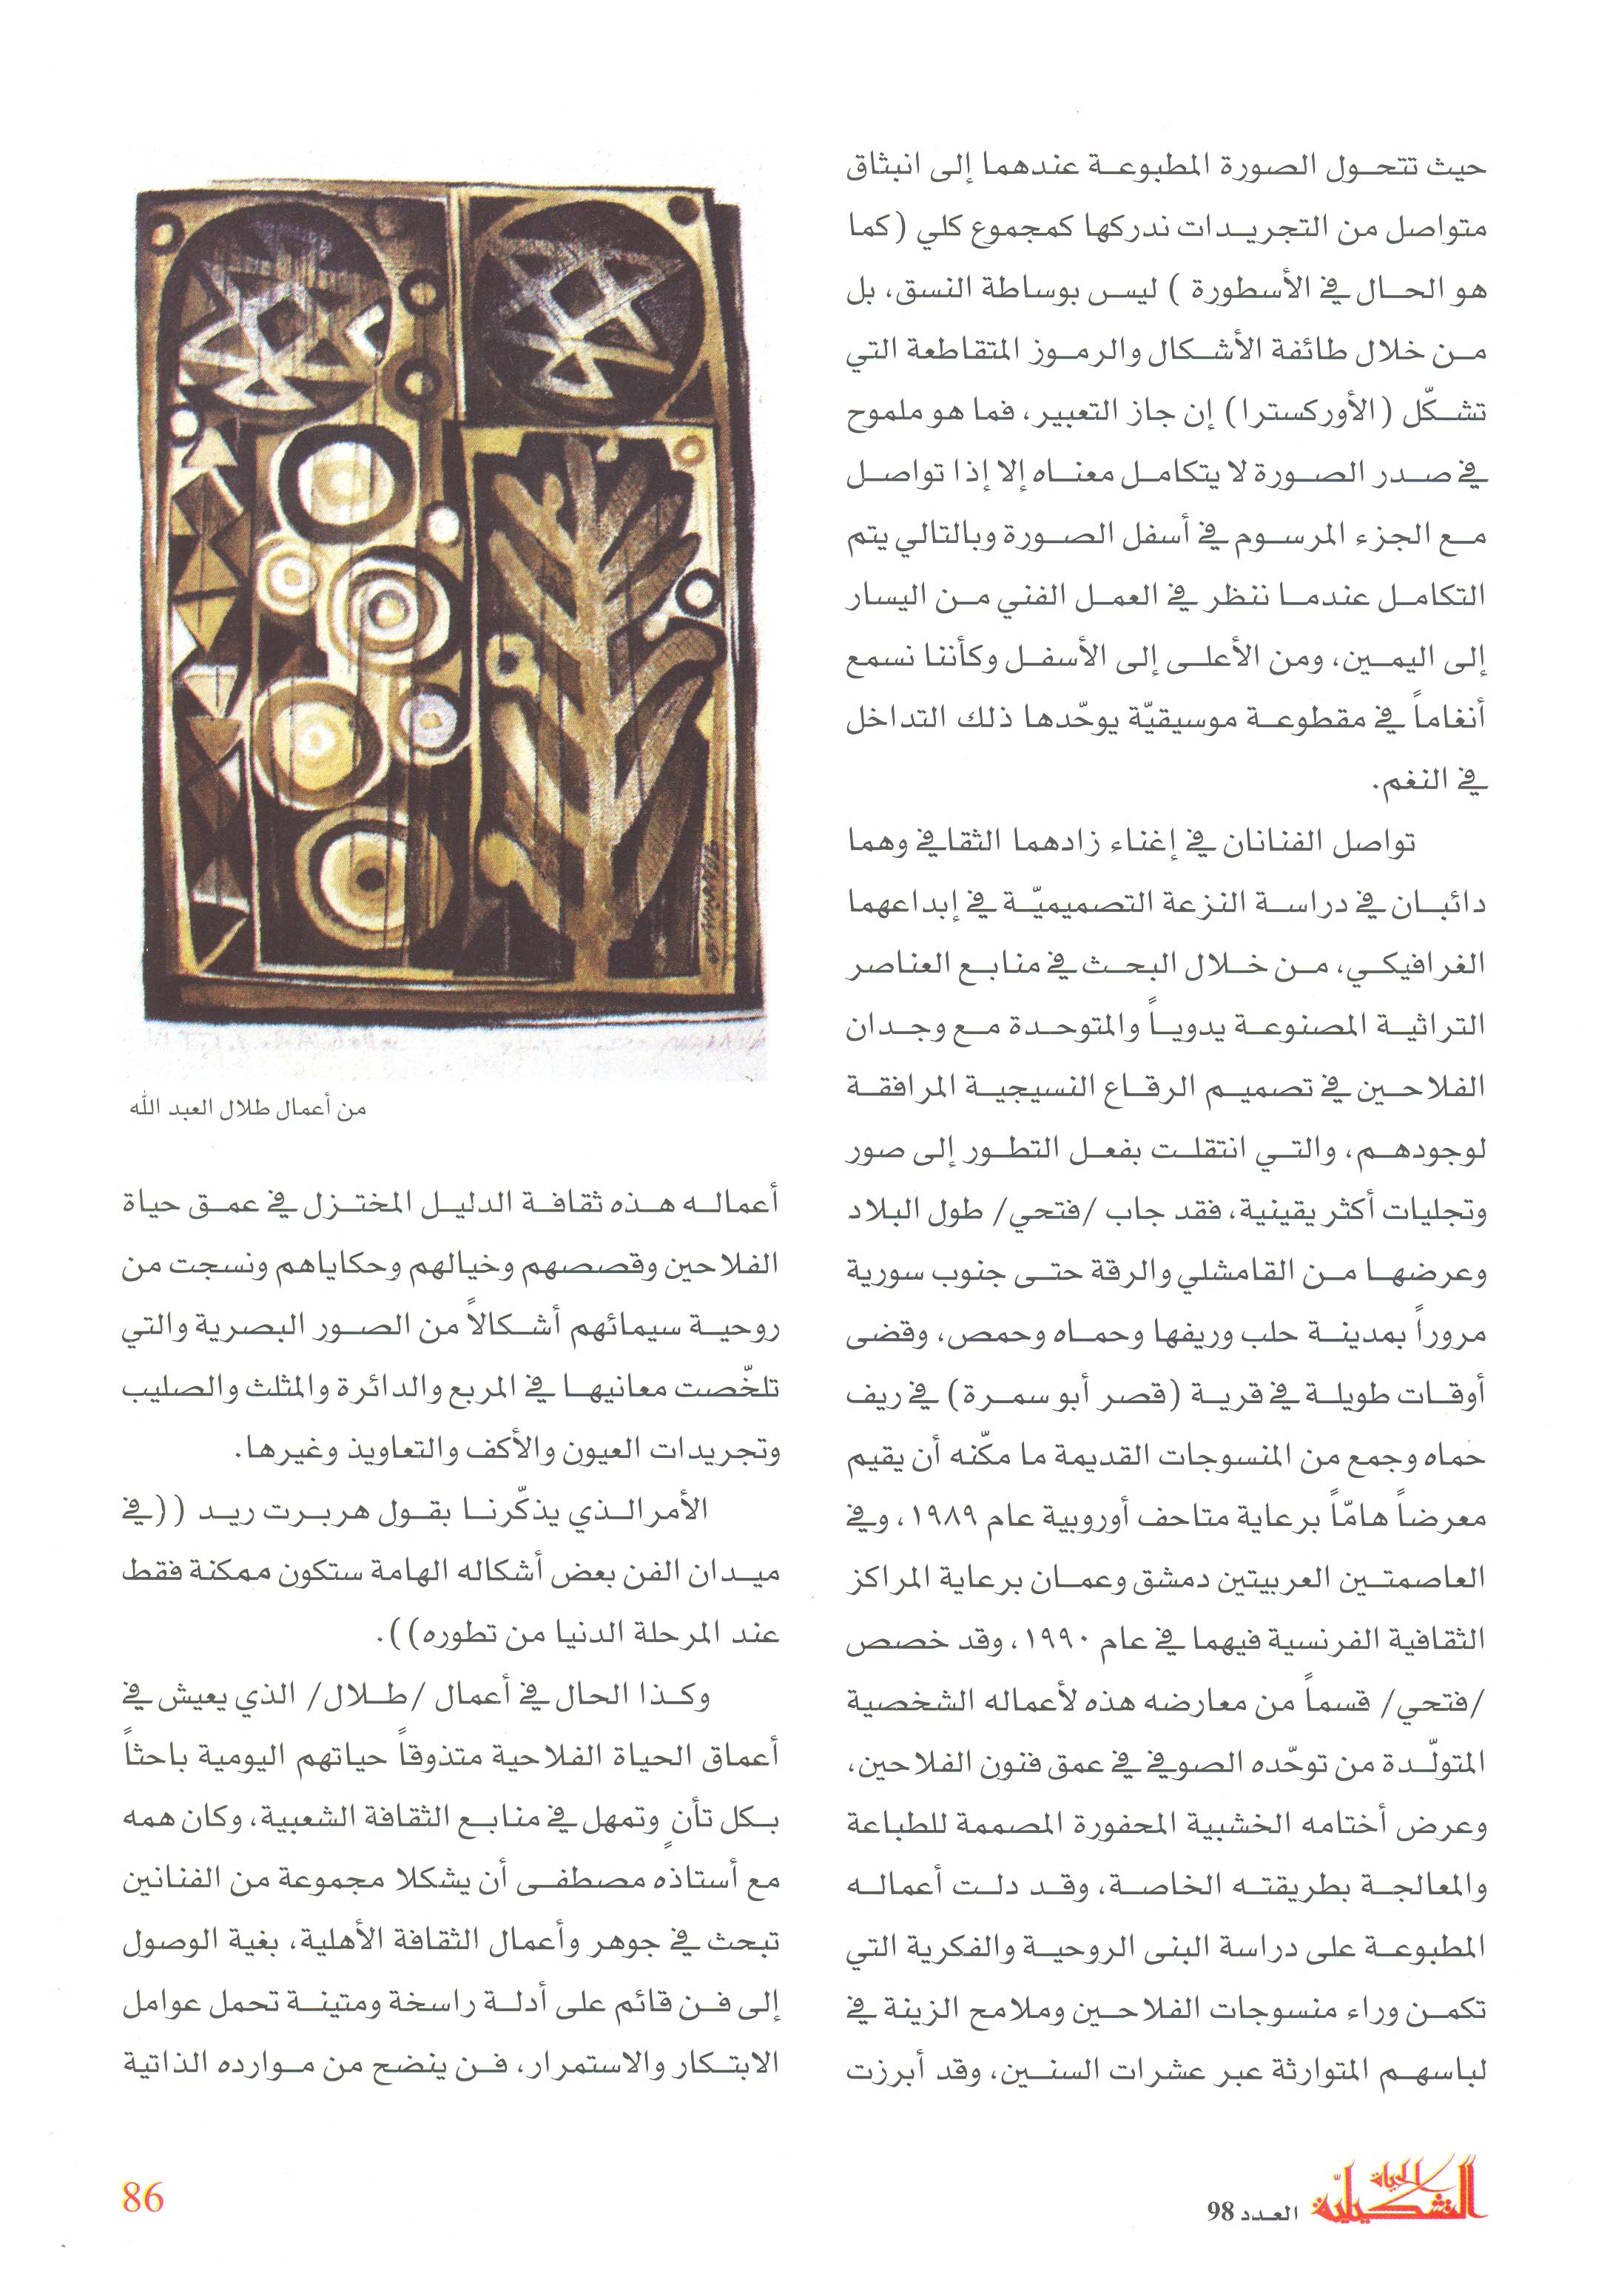 حيث تتحول الصورة المطبوعة عندهما إلى انبثاق
متواصل من التجريدات ندركها كمجموع كلي (كما
هو الحال في الأسطورة ) ليس بوساطة النسق، بل
من خلال طائفة الأشكال والرموز المتقاطعة التي
تشكّل (الأوركسترا) إن جاز التعبير، فما هو ملموح
في صدر الصورة لا يتكامل معناه إلا إذا تواصل
مع الجزء المرسوم في أسفل الصورة وبالتالي يتم
التكامل عندما ننظر في العمل الفني من اليسار
إلى اليمين، ومن الأعلى إلى الأسفل وكأننا نسمع
أنغاماً في مقطوعة موسيقيّة يوحّدها ذلك التداخل
في النغم.
تواصل الفنانان في إغناء زادهما الثقافي وهما
دائبان في دراسة النزعة التصميميّة في إبداعهما
الغرافيكي، من خلال البحث في منابع العناصر
التراثية المصنوعة يدوياً والمتوحدة مع وجدان
الفلاحين في تصميم الرقاع النسيجية المرافقة
لوجودهم، والتي انتقلت بفعل التطور إلى صور
وتجليات أكثر يقينية، فقد جاب /فتحي/ طول البلاد
وعرضها من القامشلي والرقة حتى جنوب سورية
مروراً بمدينة حلب وريفها وحماه وحمص، وقضى
أوقات طويلة في قرية (قصر أبو سمرة) في ريف
حماه وجمع من المنسوجات القديمة ما مكّنه أن يقيم
معرضاً هامّاً برعاية متاحف أوروبية عام ١٩٨٩، وفي
العاصمتين العربيتين دمشق وعمان برعاية المراكز
الثقافية الفرنسية فيهما في عام ١٩٩٠، وقد خصص
/فتحي/ قسماً من معارضه هذه لأعماله الشخصية
المتولّدة من توحّده الصوفي في عمق فنون الفلاحين،
وعرض أختامه الخشبية المحفورة المصممة للطباعة
والمعالجة بطريقته الخاصة، وقد دلت أعماله
المطبوعة على دراسة البنى الروحية والفكرية التي
تكمن وراء منسوجات الفلاحين وملامح الزينة في
لباسهم المتوارثة عبر عشرات السنين، وقد أبرزت
من أعمال طلال العبد الله
أعماله هذه ثقافة الدليل المختزل في عمق حياة
الفلاحين وقصصهم وخيالهم وحكاياهم ونسجت من
روحية سيمائهم أشكالاً من الصور البصرية والتي
تلخّصت معانيها في المربع والدائرة والمثلث والصليب
وتجريدات العيون والأكف والتعاويذ وغيرها.
الأمر الذي يذكّرنا بقول هربرت ريد ((في
ميدان الفن بعض أشكاله الهامة ستكون ممكنة فقط
عند المرحلة الدنيا من تطوره)).
وكذا الحال في أعمال /طلال/ الذي يعيش في
أعماق الحياة الفلاحية متذوقاً حياتهم اليومية باحثاً
بكل تأنٍ وتمهل في منابع الثقافة الشعبية، وكان همه
مع أستاذه مصطفى أن يشكلا مجموعة من الفنانين
تبحث في جوهر وأعمال الثقافة الأهلية، بغية الوصول
إلى فن قائم على أدلة راسخة ومتينة تحمل عوامل
الابتكار والاستمرار، فن ينضح من موارده الذاتية
الحياة التشكيليّة
العدد 98
86